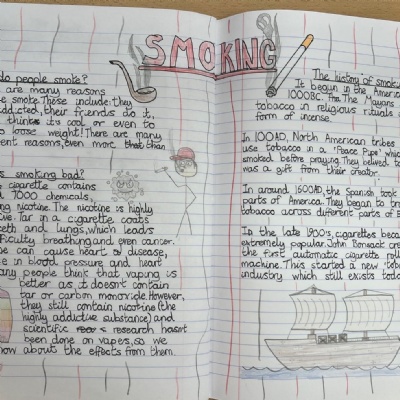 SMOKING
do people smoke?
are many reasons
e smoke. These include: they
addicted, their friends do it,
think its cool or even to
loose weight! There are many
ent reasons, even more than
s smoking bad?
cigarette contains
7000 chemicals,
ng nicotine. The nicotine is highly
ive. Tar in a cigarette coats
eeth and lungs, which leads
fficulty breathing and even cancer.
e can cause heart disease,
e in blood pressure and heart
any people think that vaping is
better as it doesn't contain
tar or carbon monoxide. However,
they still contain nicotine (the
highly addictive substance) and
scientific research hasnt
been done on vapes, so we
now about the effects from them.
The history of smoki
It began in the America
1000BC. The Mayans
tobacco in religious rituals a
form of incense.
In 100AD, North American tribes
use tobacco in a "Peace Pipe" whic
smoked before praying. They believed to
was a gift from their creator.
In around 1600AD, the Spanish took
parts of America. They began to tra
tobacco across different parts of E
In the late 1900's, cigarettes becam
extremely popular. John Bonsack cre
the first automatic cigarette roll
machine. This started a new 'tobac
industry which still exists toda